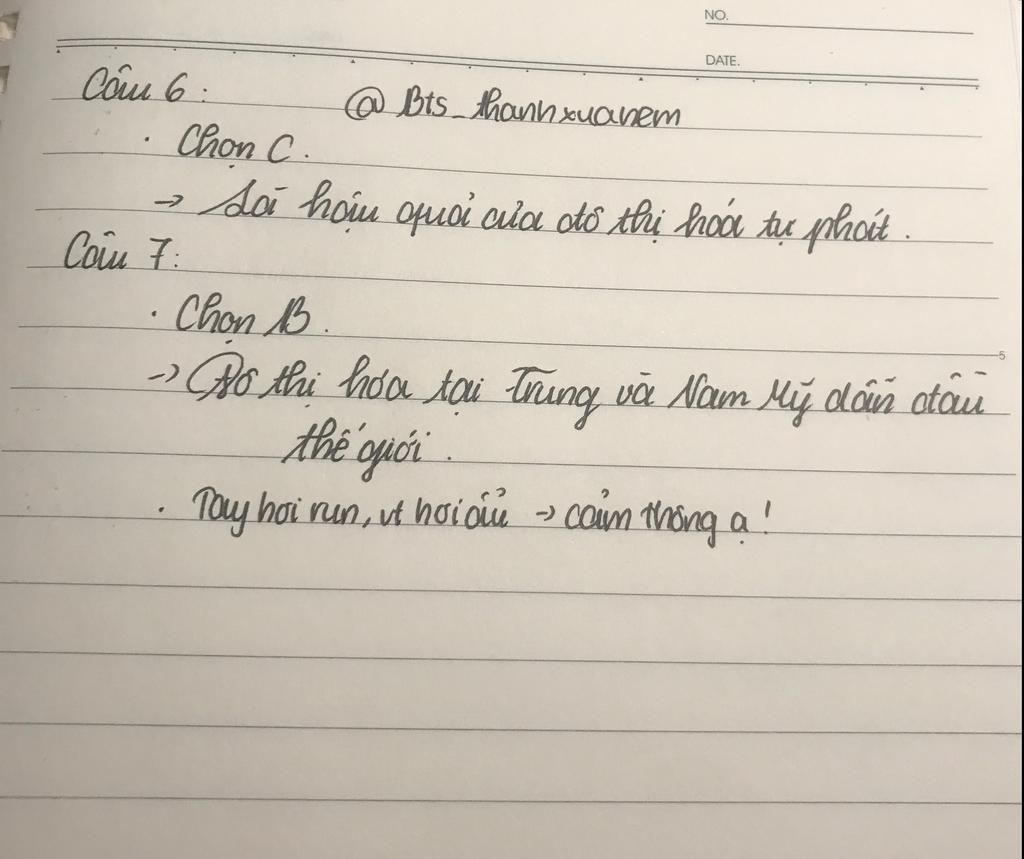 NO.
DATE.
Câu 6 :
@ Bts_thanhxuanem
· Chọn C .
→ Là hậu quả của đô thị hóa tự phát .
Câu 7 :
· Chọn B .
→ Đô thị hóa tại Trung và Nam Mỹ dẫn đầu
thế giới .
· Tay hơi run, vt hơi ẩu → cảm thông ạ !
5